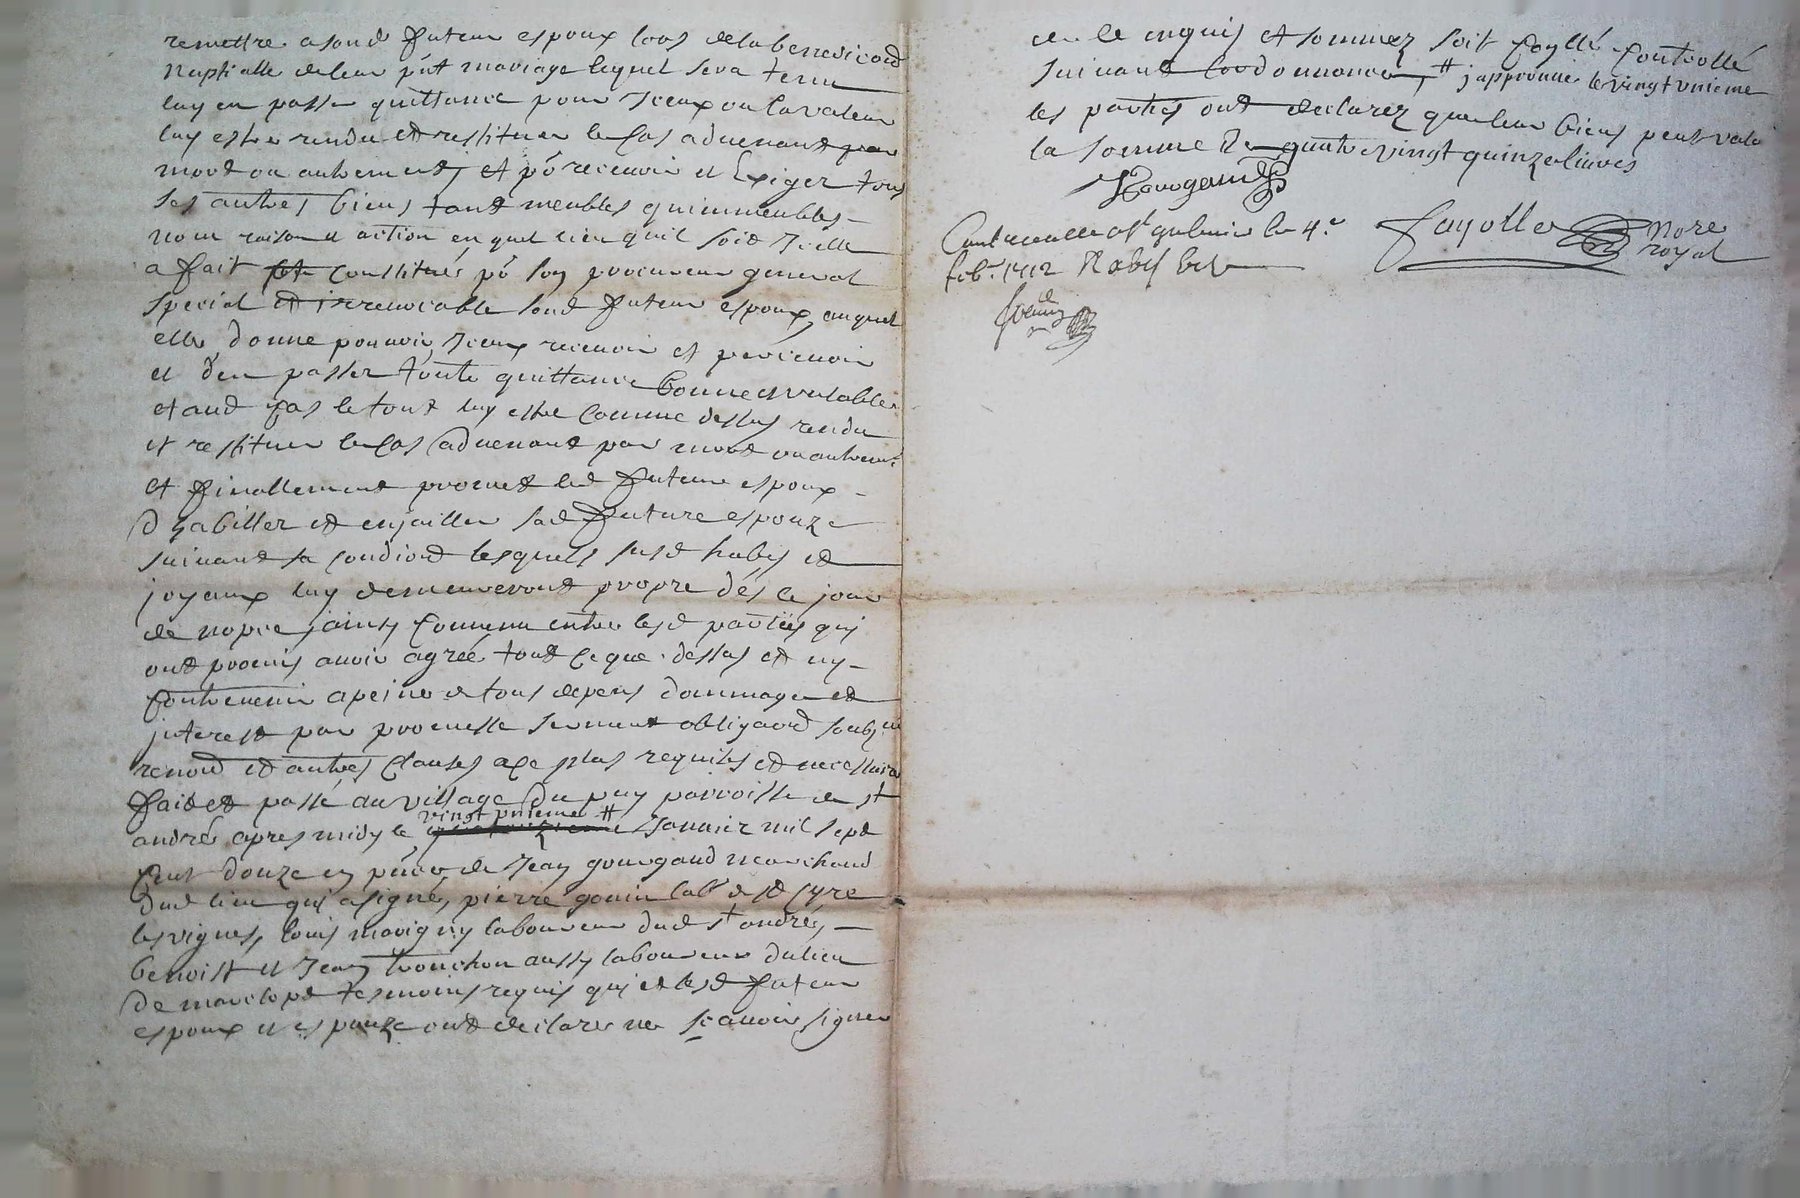 remettre a sond futeur espoux lors de la benediond
nuptialle de leur pnt mariage lequel sera tenu
luy en passer quittance pour iceux ou la valeur
luy estre rendu et restituer le cas advenant par
mort ou autrement, et po recevoir et Exiger tous
ses autres biens tant meubles qu immeubles
nom raison et action en quel lieu quil soit Icelle
a fait constitué po son procureur general
special et irrevocable sond futeur espoux, auquel
elle donne pouvoir Iceux recevoir et percevoir
et d'en passer toute quittance bonne et valable
et aud cas le tout luy estre comme dessus rendu
et restituer le cas advenant par mort ou autremt
et finallement promet led futeur espoux
d habiller et enjailler sad future espouze
suivant sa condiond lesquels susd habis et
joyaux luy demeureront propre dès le jour
de nopce, ainsy convenu entre lesd parties qui
ont promis avoir agreé tout ce que dessus et ny
contrevenir a peine de tous depens dommage et
interest par promesse serment obligaond soubz
renond et autres clauses a ce plus requises et necessaire
fait et passé au village du puy parroisse de st
andré apres midy le vingt unieme # Janvier mil sept
cent douze en pnce de Jean gourgaud marchand
dud lieu qui a signé, pierre gouin labr de st Cyre
les vignes, louis marigny laboureur dud st andré,
benoist et Jean tronchon aussy laboureur du lieu
de marclopt tesmoins requis qui et lesd futeur
espoux et espouze ont declarer ne scavoir signer
de ce enquis et sommez soit scellé controllé
suivant lordonnance, # japprouvue le vingt unieme
les parties ont declarez que leur biens peut valoir
la somme De quatre vingt quinze livres
Gourgaud
Fayolle Nore
royal
Controllé a st galmier le 4e
febr 1712 R